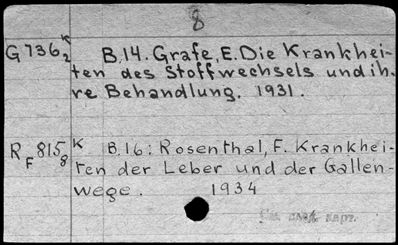 8
G 736 K 2 B.14. Grafe, E. Die Krankhei-
ten des Stoffwechsels und ih-
re Behandlung. 1931.
R F 815 K 8 B.16: Rosenthal, F. Krankhei-
ten der Leber und der Gallen-
wege. 1934
См. след. карт.